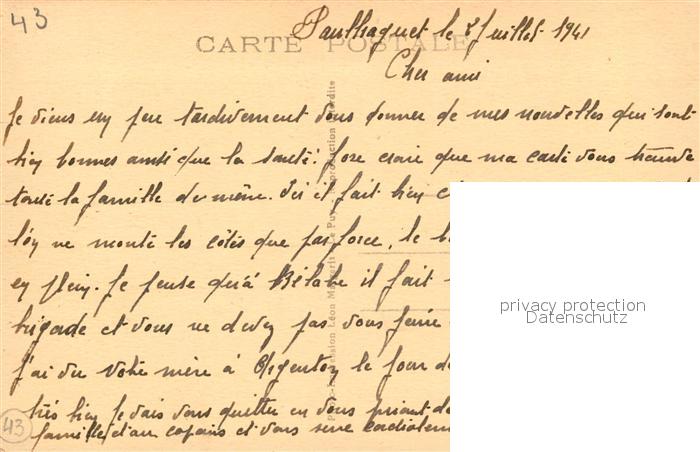 43
Paulhaguet le 8 Juillet 1941
CARTE POSTALE
Cher ami
Je viens un peu tardivement vous donner de mes nouvelles qui sont
bien bonnes ainsi que la santé. J'ose croire que ma carte vous trouve
toute la famille de même. Ici il fait bien
l'on ne monte les côtes que par force, le
en plein. Je pense qu'à il fait
brigade et vous ne devez pas vous faire
J'ai vu votre mère à Argenton le jour de
très bien Je vais vous quitter en vous priant de
famille et aux copains et vous serre cordialem
43
Léon Margerit - Le Puy - Reproduction interdite
privacy protection
Datenschutz